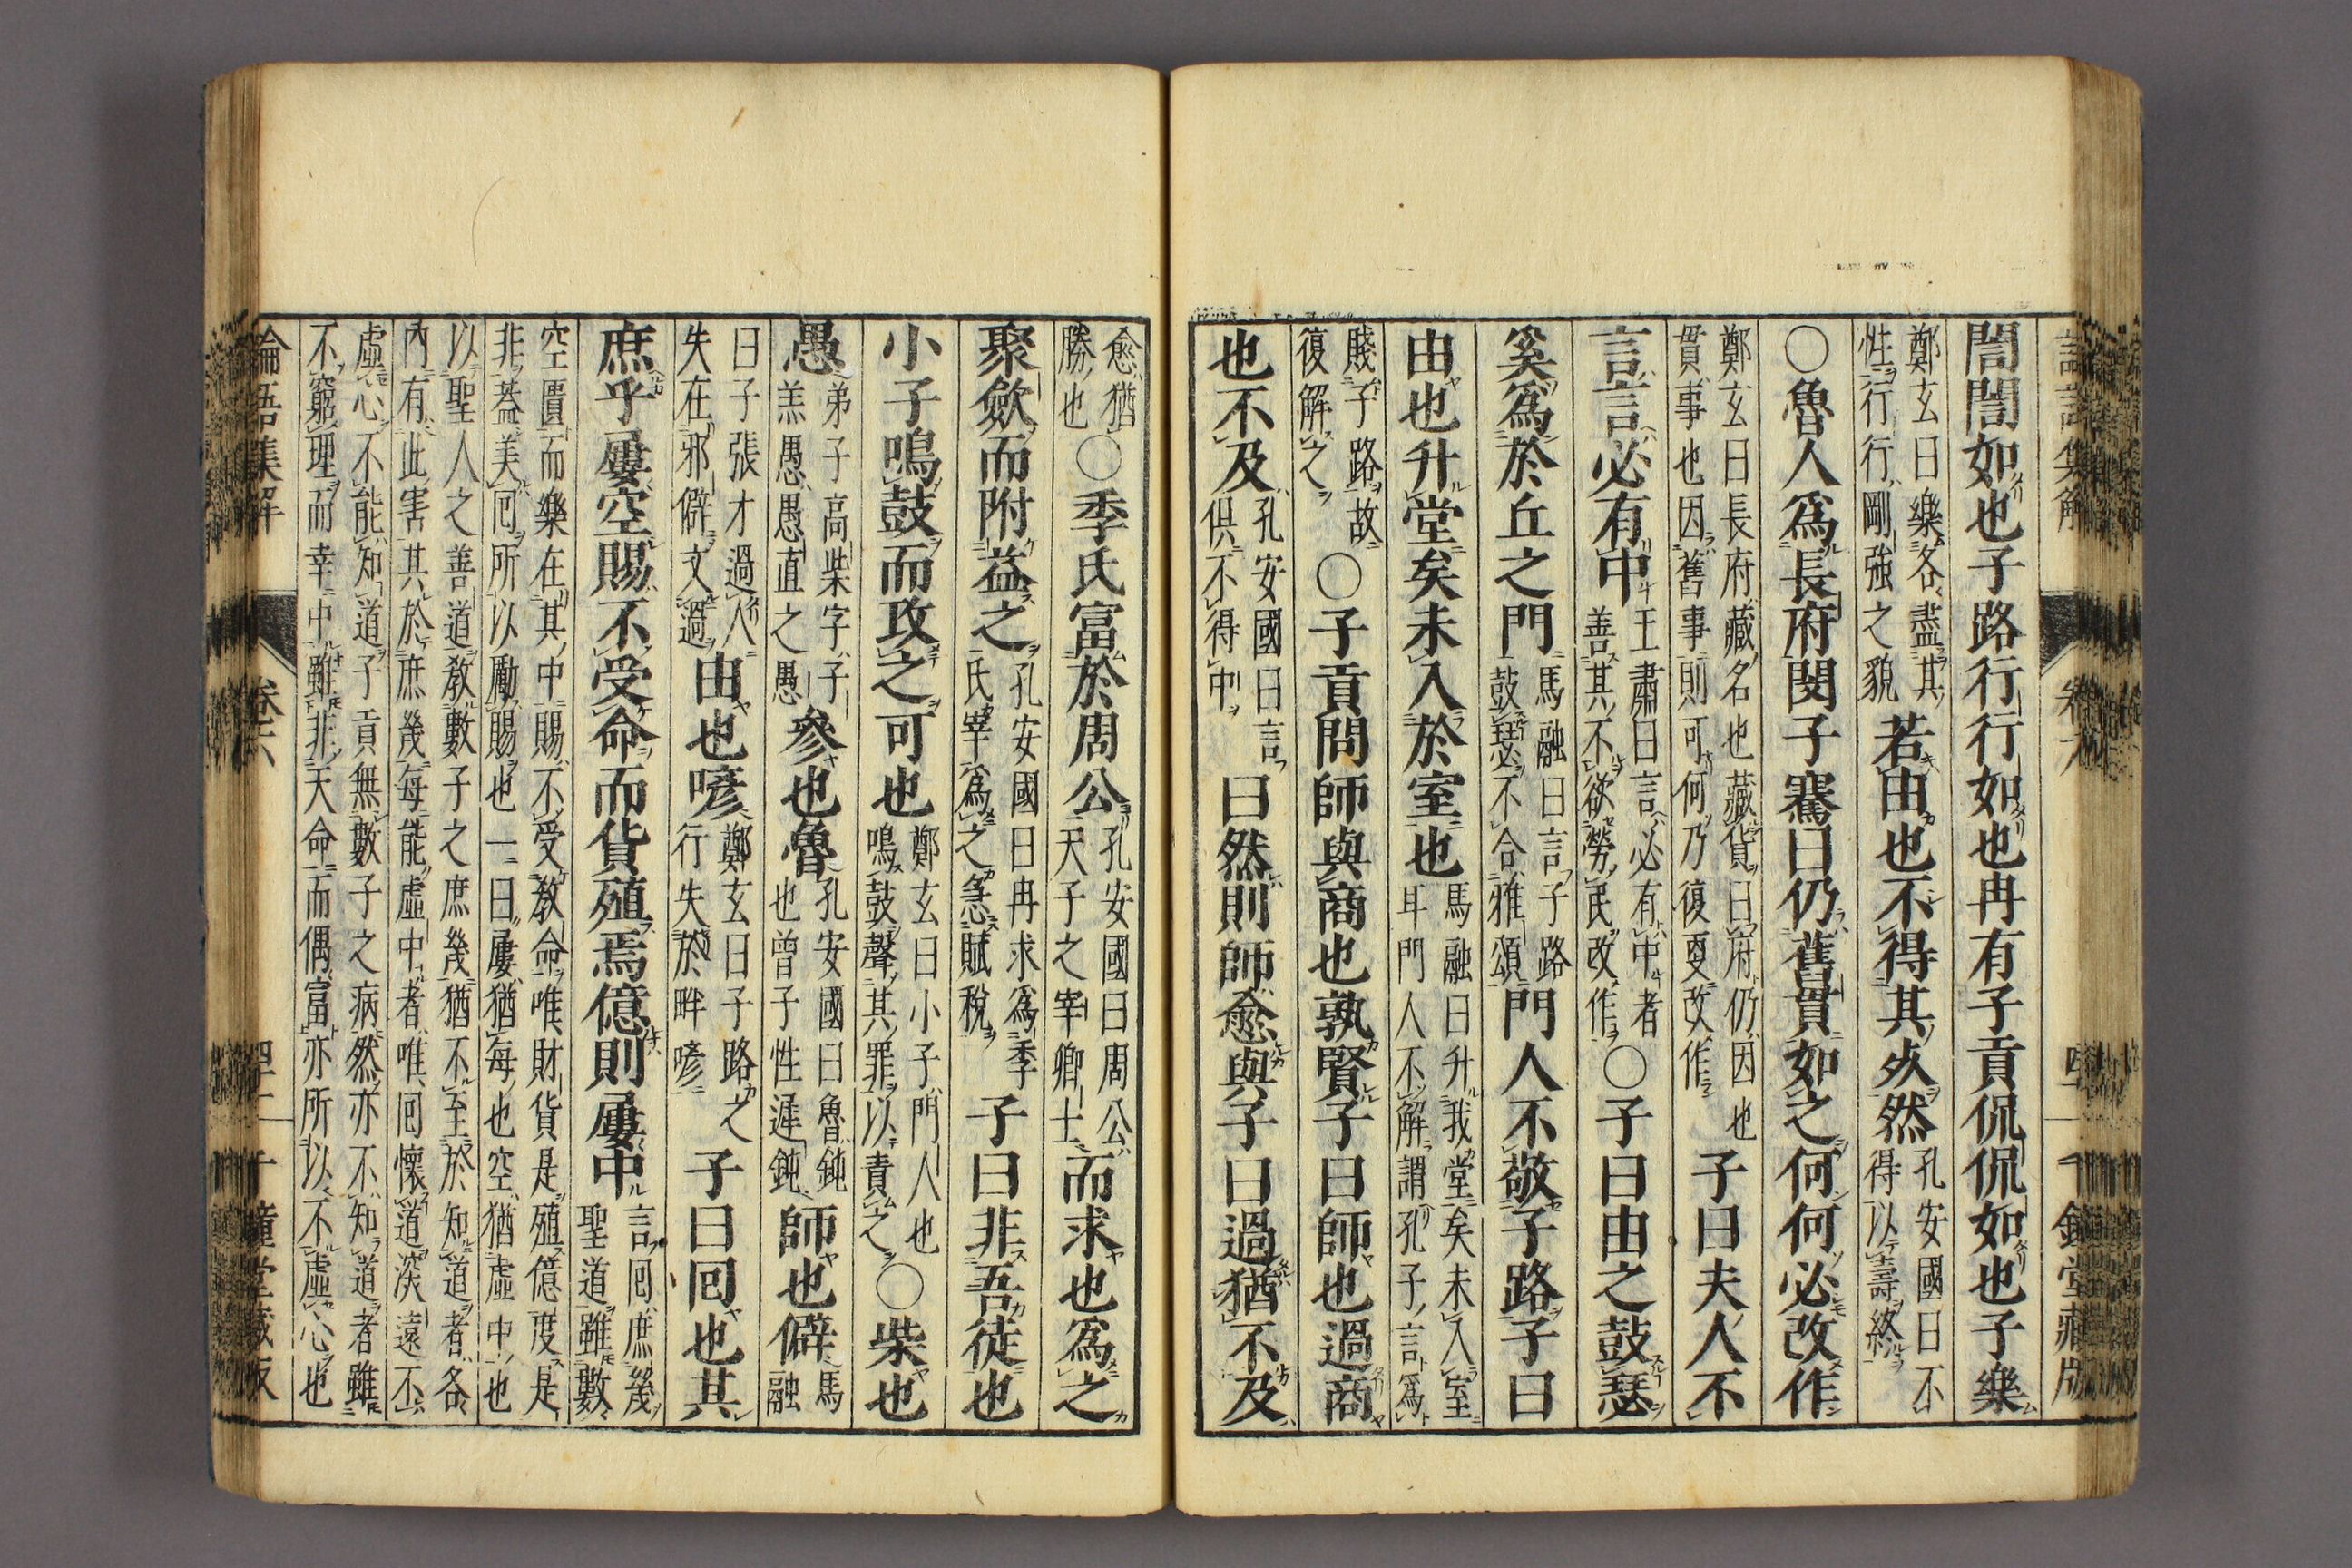 誾誾如也子路行行如也冉有子貢侃侃如也子樂
鄭玄曰樂各盡其性行行剛強之貌若由也不得其死然孔安國曰不得以壽終
○魯人爲長府閔子騫曰仍舊貫如之何何必改作
鄭玄曰長府藏名也藏貨曰府仍因也貫事也因舊事則可何乃復更改作子曰夫人不
言言必有中王肅曰言必有中者善其不欲勞民改作○子曰由之鼓瑟
奚爲於丘之門馬融曰言子路鼓瑟不合雅頌門人不敬子路子曰
由也升堂矣未入於室也馬融曰升我堂矣未入室耳門人不解謂孔子言爲
賤子路故復解之○子貢問師與商也孰賢子曰師也過商
也不及孔安國曰言俱不得中曰然則師愈與子曰過猶不及
愈猶勝也○季氏富於周公孔安國曰周公天子之宰卿士而求也爲之
聚斂而附益之孔安國曰冉求爲季氏宰爲之急賦稅子曰非吾徒也
小子鳴鼓而攻之可也鄭玄曰小子門人也鳴鼓聲其罪以責之○柴也
愚弟子高柴字子羔愚愚直之愚參也魯孔安國曰魯鈍也曾子性遲鈍師也僻馬融
曰子張才過人失在邪僻文過由也喭鄭玄曰子路之行失於畔喭子曰囘也其
庶乎屢空賜不受命而貨殖焉億則屢中言囘庶幾聖道雖數
空匱而樂在其中賜不受敎命唯財貨是殖億度是非蓋美囘所以勵賜也一曰屢猶每也空猶虛中也
以聖人之善道敎數子之庶幾猶不至於知道者各內有此害其於庶幾每能虛中者唯囘懷道深遠不
虛心不能知道子貢無數子之病然亦不知道者雖不窮理而幸中雖非天命而偶富亦所以不虛心也
論語集解 卷六